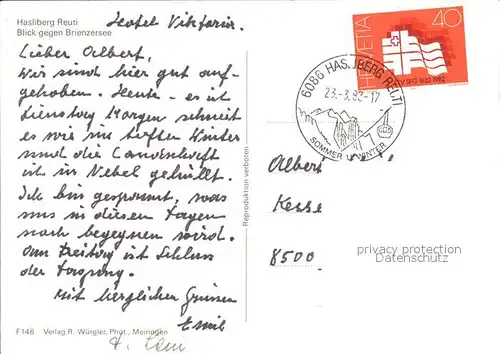 Hasliberg Reuti
Blick gegen Brienzersee
Hotel Viktoria.
Lieber Albert,
Wir sind hier gut auf-
gehoben. Heute - es ist
Dienstag Morgen schneit
es wie im tiefsten Winter
und die Landschaft
ist in Nebel gehüllt.
Ich bin gespannt, was
uns in diesen Tagen
noch begegnen wird.
Am Freitag ist Schluss
der Tagung.
Mit herzlichen Grüssen
Emil
F 146 Verlag R. Würgler, Phot., Meiringen
Reproduktion verboten
HELVETIA 40
6086 HASLIBERG REUTI
23.-3.82-17
SOMMER U. WINTER
Albert
Kesse
8500
privacy protection
Datenschutz